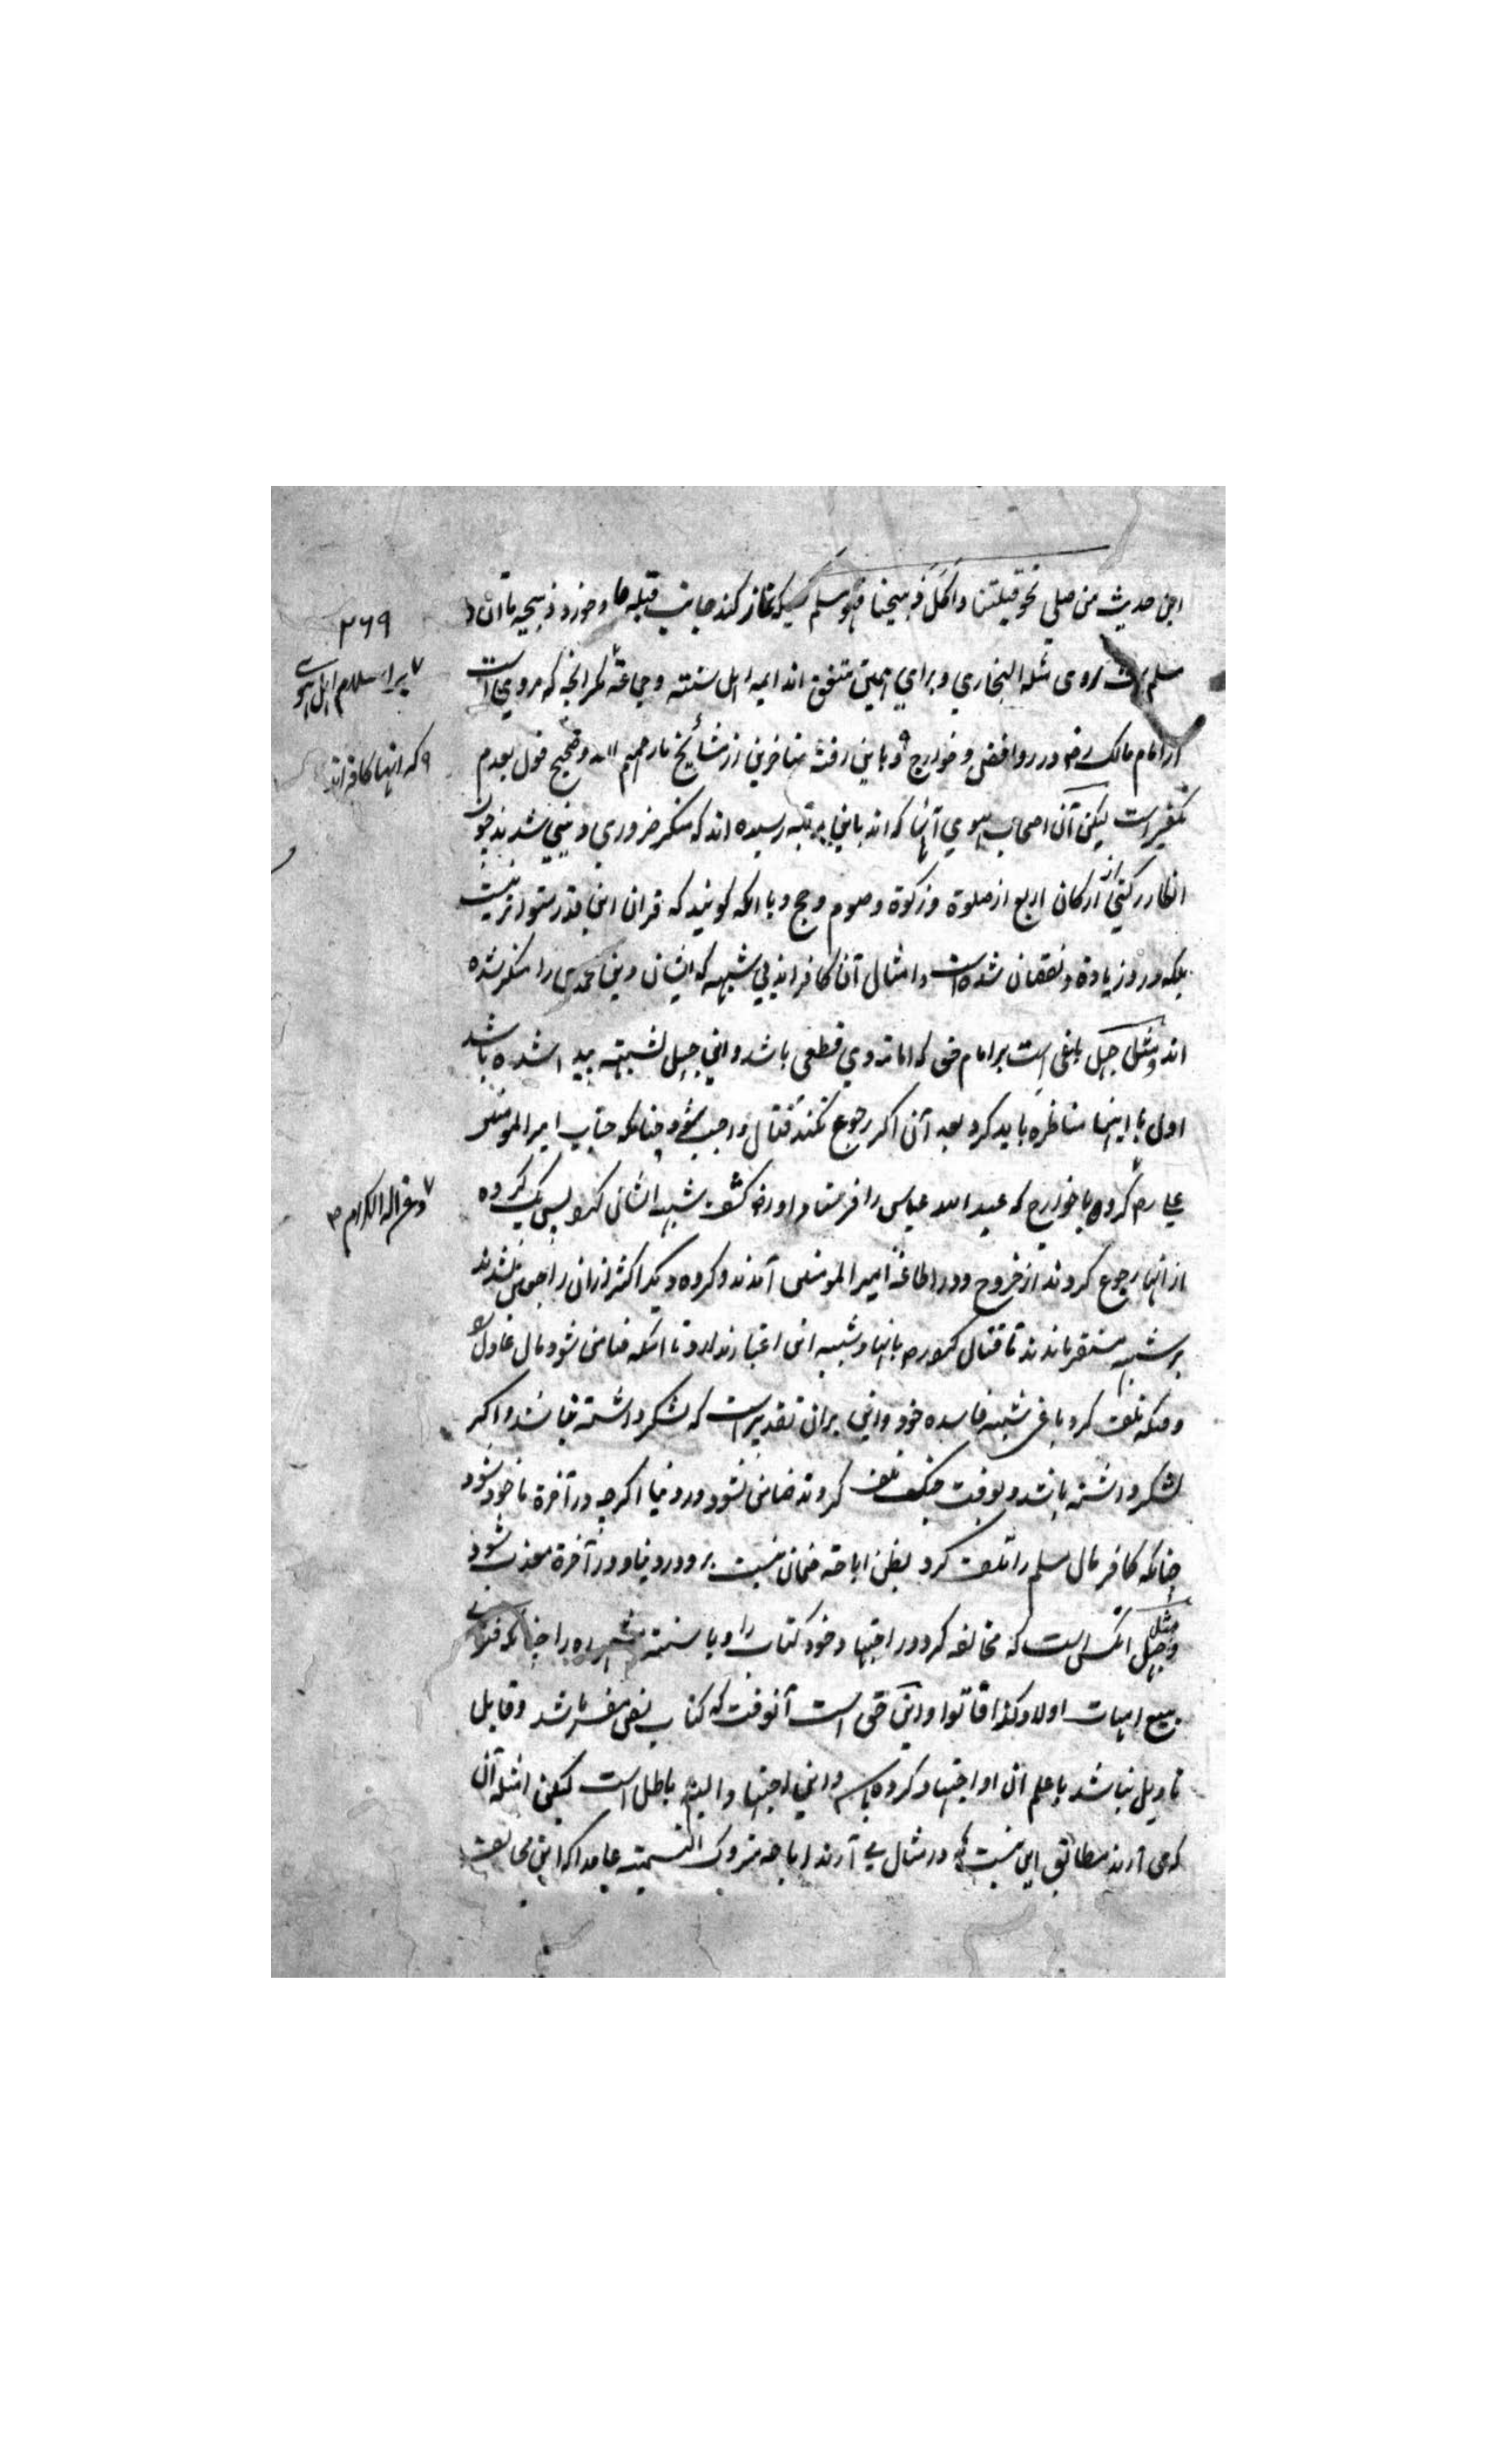 اجل حدیث من صلی نحو قبلتنا و اکل ذبیحتنا فهو مسلم کسیکه نماز کند جانب قبله ما و خورد ذبیحه ما آن
مسلم است روی مثله البخاري و براي همین متفق اند ایمه اهل سنته و جماعة مگر انچه که مروي است
از امام مالک رض در روافض و خوارج و باین رفتة متاخرین از مشایخ ما رحمهم الله و صحیح قول بعدم
تکفیر است لیکن آن اصحاب هوي آنها که اند باین مرتبه رسیده اند که منکر ضروري دیني شدند چون
انکار رکني از ارکان اربع از صلوة و زکوة و صوم و حج و یا انکه گویند که قران این قدر متواتر نیست
بلکه در و زیادة و نقصان شده است و امثال آن کافر اند بی شبهه که ایشان دین محمدی را منکر شده
اند و مثل جهل باغی است بر امام حق که امامة وي قطعی باشد و این جهل لشبهته پیدا شده باشد
اول با اینها مناظره باید کرد بعد آن اگر رجوع نکنند قتال واجب شود چنانکه جناب امیر المومنین
علي رض کرده با خوارج که عبد الله عباس را فرستاد و او رض کشف شبهه ایشان نمود پس یک گروه
از انها رجوع کردند از خروج و در اطاعة امیر المومنین آمدند و گروه دیگر اکثر ازان راجع نشدند
بر شبهه مستقر ماندند تا قتال نمود رض بانها و شبهه این اعتبار ندارد تا انکه ضامن شود مال عادل
وقتیکه تلف کرد باغی شبهه فاسده خود و این بران تقدیر است که لشکر داشته نباشد و اگر
لشکر داشته باشد و بوقت جنگ تلف کردند ضامن نشود در دنیا اگرچه در آخرة ماخوذ شود
چنانکه کافر مال مسلم را تلف کرد بظن اباحة ضمان نیست برو در دنیا و در آخرة معذب شود
و مثل جهل انکس است که مخالفه کرد در اجتهاد خود کتاب را و یا سنته مشهوره را چنانکه فتوی
ببیع امهات اولاد کذا قالوا و این حق است آنوقت که کتاب نص مفسر باشد و قابل
تاویل نباشد با علم آن او اجتهاد کرده باشد و این اجتهاد البته باطل است لیکن امثله آن
که می آرند مطابق این نیست که در مثال می آرند اباحه متروک التسمیته عامدا که این مخالف
۳۶۹
بر اسلام اهل هوی
که اینها کافر اند
و عن اله الکرام